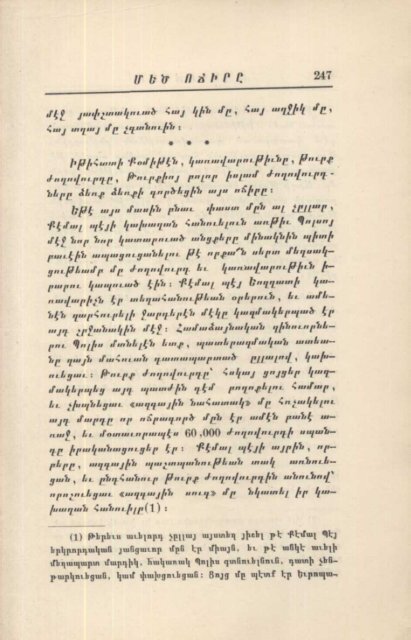 ՄԵԾ ՈՃԻՐԸ 247
մէջ յափշտակուած հայ կին մը, հայ աղջիկ մը,
հայ տղայ մը չգտնուին։
* * *
Իթիհատի Քօմիթէն, կառավարութիւնը, Թուրք
ժողովուրդը, Թուրքիոյ բոլոր իսլամ ժողովուրդ-
ները ձեռք ձեռքի գործեցին այս ոճիրը։
Եթէ այս մասին ընաւ փաստ մըն ալ չըլլար,
Քէմալ պէյի կախաղան հանուելուն առթիւ Պոլսոյ
մէջ նոր նոր կատարուած անցքերը մինակնին պիտի
բաւէին ապացուցանելու թէ որքա՜ն սերտ մեղսակ-
ցութեամբ մը ժողովուրդ եւ կառավարութիւն ի-
րարու կապուած էին։ Քէմալ պէյ Եոզղատի կա-
ռավարիչն էր տեղահանութեան օրերուն, եւ ամե-
նէն զարհուրելի ջարդերէն մէկը կազմակերպած էր
այդ շրջանակին մէջ։ Համաձայնական զինուորնե-
րու Պոլիս մտնելէն ետք, պատերազմական ատեա-
նը զայն մահուան դատապարտած ըլլալով, կախ-
ուեցաւ։ Թուրք ժողովուրդը՝ հսկայ ցոյցեր կազ-
մակերպեց այդ պատժին դէմ բողոքելու համար,
եւ չխղնեցաւ «ազգային նահատակ» մը հռչակելու
այդ մարդը որ ոճրագործ մըն էր ամէն բանէ ա-
ռաջ, եւ մօտաւորապէս 60,000 ժողովուրդի սպան-
դը իրականացուցեր էր։ Քէմալ պէյի այրին, որ-
բերը, ազգային պաշտպանութեան տակ առնուե-
ցան, եւ ընդհանուր Թուրք ժողովուրդին անունով՝
որոշուեցաւ «ազգային սուգ» մը նկատել իր կա-
խաղան հանուիլը(1)։
(1) Թերեւս աւելորդ չըլլայ այստեղ յիշել թէ Քէմալ Պէյ
երկրորդական յանցաւոր մըն էր միայն, եւ թէ անկէ աւելի
մեղապարտ մարդիկ, հակառակ Պոլիս գտնուելնուն, դատի չեն-
թարկուեցան, կամ փախցուեցան։ Ցոյց մը պէտք էր Եւրոպա-